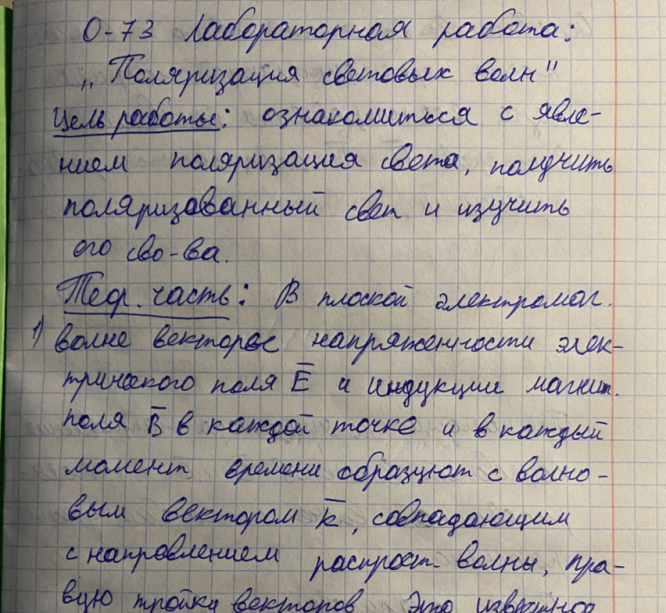 О-73 Лабораторная работа:
„Поляризация световых волн"
Цель работы: ознакомиться с явле-
нием поляризация света, получить
поляризованный свет и изучить
его сво-ва.
Теор. часть: В плоской электромаг.
1) волне векторы напряженности элек-
трического поля E̅ и индукции магнит.
поля B̅ в каждой точке и в каждый
момент времени образуют с волно-
вым вектором k̅, совпадающим
с направлением распрост. волны, пра-
вую тройку векторов. Это